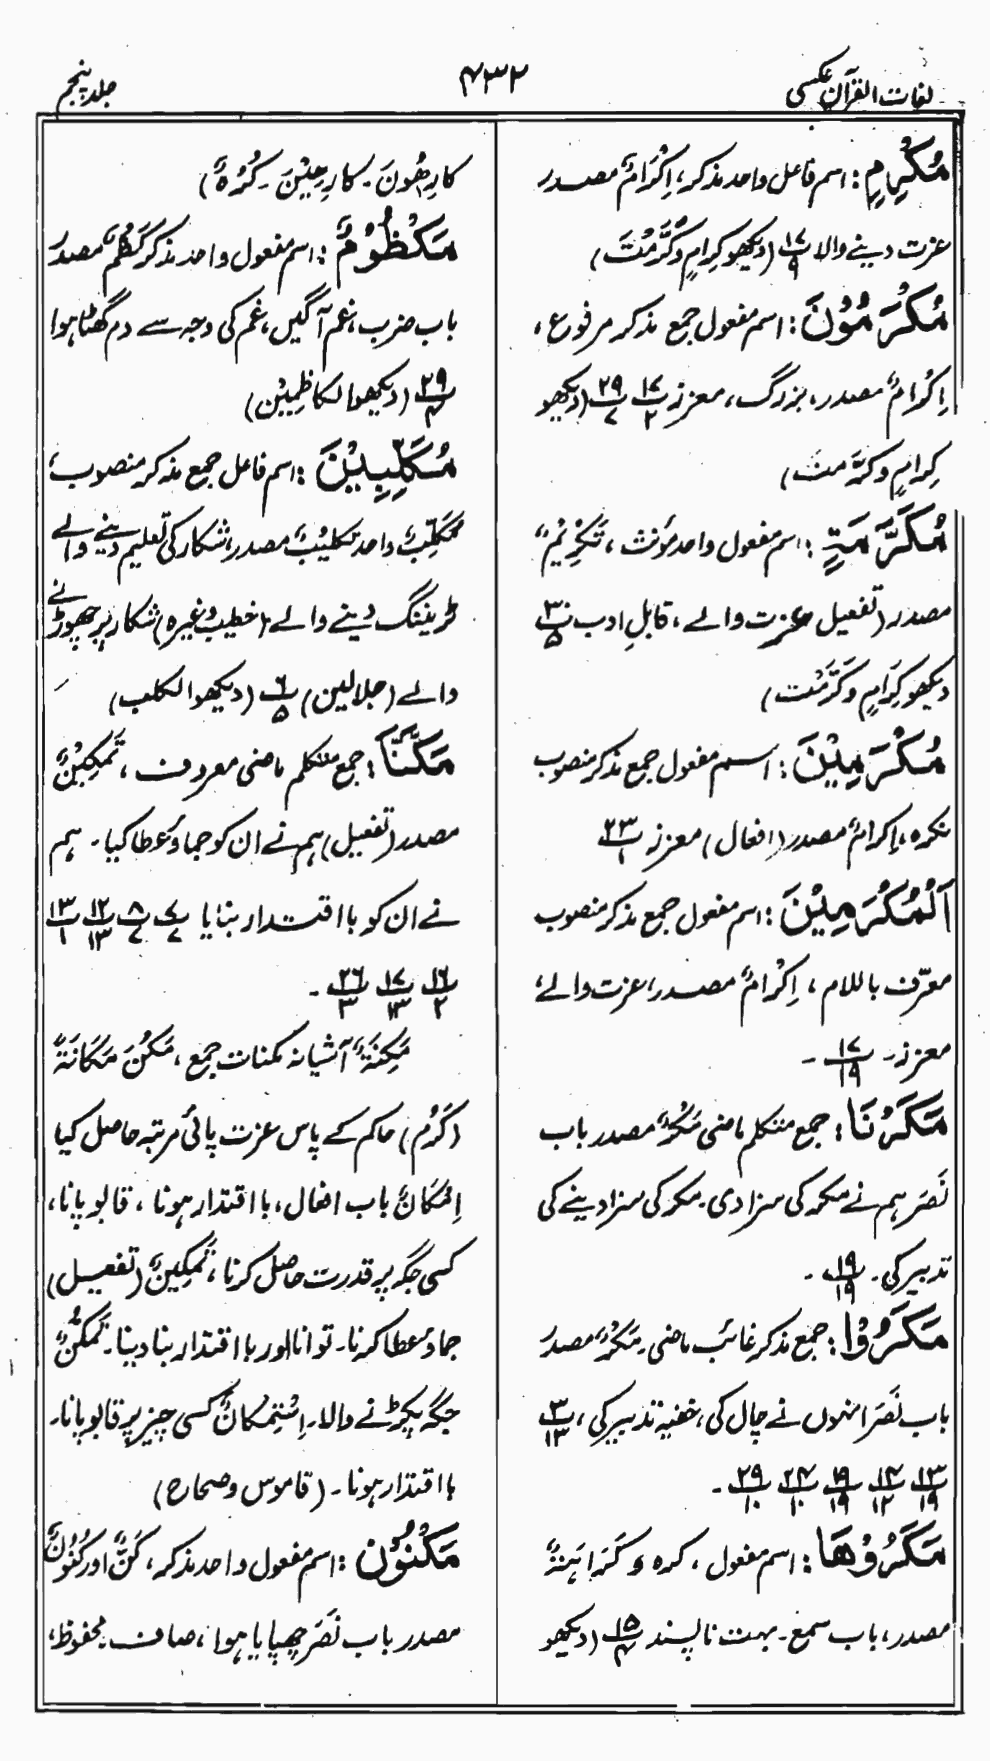 لغات القرآن عکسی
۴۳۲
جلد پنجم
مُکْرِمٍ: اسم فاعل واحد مذکر، اِکْرَامٌ مصدر
عزت دینے والا ۱۷/۹ (دیکھو کِرَامٍ وکَرَّمْتَ)
مُکْرَمُوْنَ: اسم مفعول جمع مذکر مرفوع،
اِکْرَامٌ مصدر، بزرگ، معزز ۱۷/۲ ۲۹/۷ (دیکھو
کِرَامٍ وکَرَّمت)
مُکَرَّمَةٍ: اسم مفعول واحد مؤنث، تَکْرِیْمٌ
مصدر (تفعیل) عزت والے، قابلِ ادب ۳۰/۵
دیکھو کِرَامٍ وکَرَّمْت)
مُکْرَمِیْنَ: اسم مفعول جمع مذکر منصوب
نکرہ، اِکرامٌ مصدر (افعال) معزز ۲۳/۱
اَلْمُکْرَمِیْنَ: اسم مفعول جمع مذکر منصوب
معرّف باللام، اِکْرَامٌ مصدر، عزت والے،
معزز۔ ۱۷/۱۹ ۔
مَکَرْنَا: جمع متکلم ماضی مَکْرٌ مصدر باب
نَصَرَ ہم نے مکر کی سزا دی۔ مکر کی سزا دینے کی
تدبیر کی۔ ۱۹/۱۹ ۔
مَکَرُوْا: جمع مذکر غائب ماضی۔ مَکْرٌ مصدر
باب نَصَرَ انہوں نے چال کی، خفیہ تدبیر کی، ۳/۱۳
۱۳/۱۹ ۱۴/۱۲ ۱۹/۱۹ ۲۴/۱۰ ۲۹/۱۰ ۔
مَکْرُوْھًا: اسم مفعول، کرہ وَ کَرَاہَیةٌ
مصدر، باب سمع۔ بہت ناپسند ۱۵/۴ (دیکھو
کارِھُونَ۔ کارِھِیْنَ۔ کُرْہٌ)
مَکْظُوْمٌ: اسم مفعول واحد مذکر کَظْمٌ مصدر
باب ضرب، غم آگیں، غم کی وجہ سے دم گھٹتا ہوا
۲۹/۴ (دیکھو الکاظِمِیْن)
مُکَلِّبِیْنَ: اسم فاعل جمع مذکر منصوب،
مُکَلِّبٌ واحد تکلیبٌ مصدر، شکار کی تعلیم دینے والے
ٹریننگ دینے والے (خطیب وغیرہ) شکار پر چھوڑنے
والے (جلالین) ۶/۵ (دیکھو الکلب)
مَکَّنَّا: جمع متکلم ماضی معروف، تَمْکِیْنٌ
مصدر (تفعیل) ہم نے ان کو جماؤ عطا کیا۔ ہم
نے ان کو بااقتدار بنایا ۷/۷ ۸/۷ ۱۲/۱۳ ۱۳/۱
۱۶/۲ ۱۷/۱۳ ۲۶/۳ ۔
مَکِنَةٌ آشیانہ مکنات جمع، مَکُنَ مَکَانَةً
(کَرُمَ) حاکم کے پاس عزت پائی مرتبہ حاصل کیا
اِمْکَانٌ باب افعال، بااقتدار ہونا، قابو پانا،
کسی جگہ پر قدرت حاصل کرنا، تَمْکِینٌ (تفعیل)
جماؤ عطا کرنا۔ توانا اور بااقتدار بنا دینا۔ تَمَکُّنٌ
جگہ پکڑنے والا۔ اِسْتِمْکانٌ کسی چیز پر قابو پانا۔
بااقتدار ہونا۔ (قاموس وصحاح)
مَکْنُوْنٌ: اسم مفعول واحد مذکر، کَنٌّ اور کُنُوْنٌ
مصدر باب نَصَرَ چھپایا ہوا، صاف۔ محفوظ،